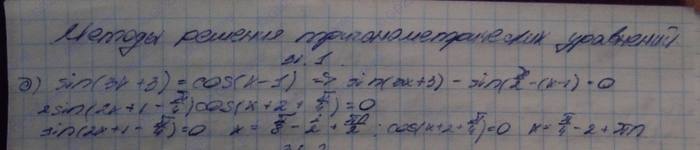 Методы решения тригонометрических уравнений
д) sin(3x+3) = cos(x-1) ⇒ sin(3x+3) - sin(π/2-(x-1)) = 0
2sin(2x+1-π/4)cos(x+2+π/4)=0
sin(2x+1-π/4)=0 x=π/8-1/2+πn/2; cos(x+2+π/4)=0 x=π/4-2+πn